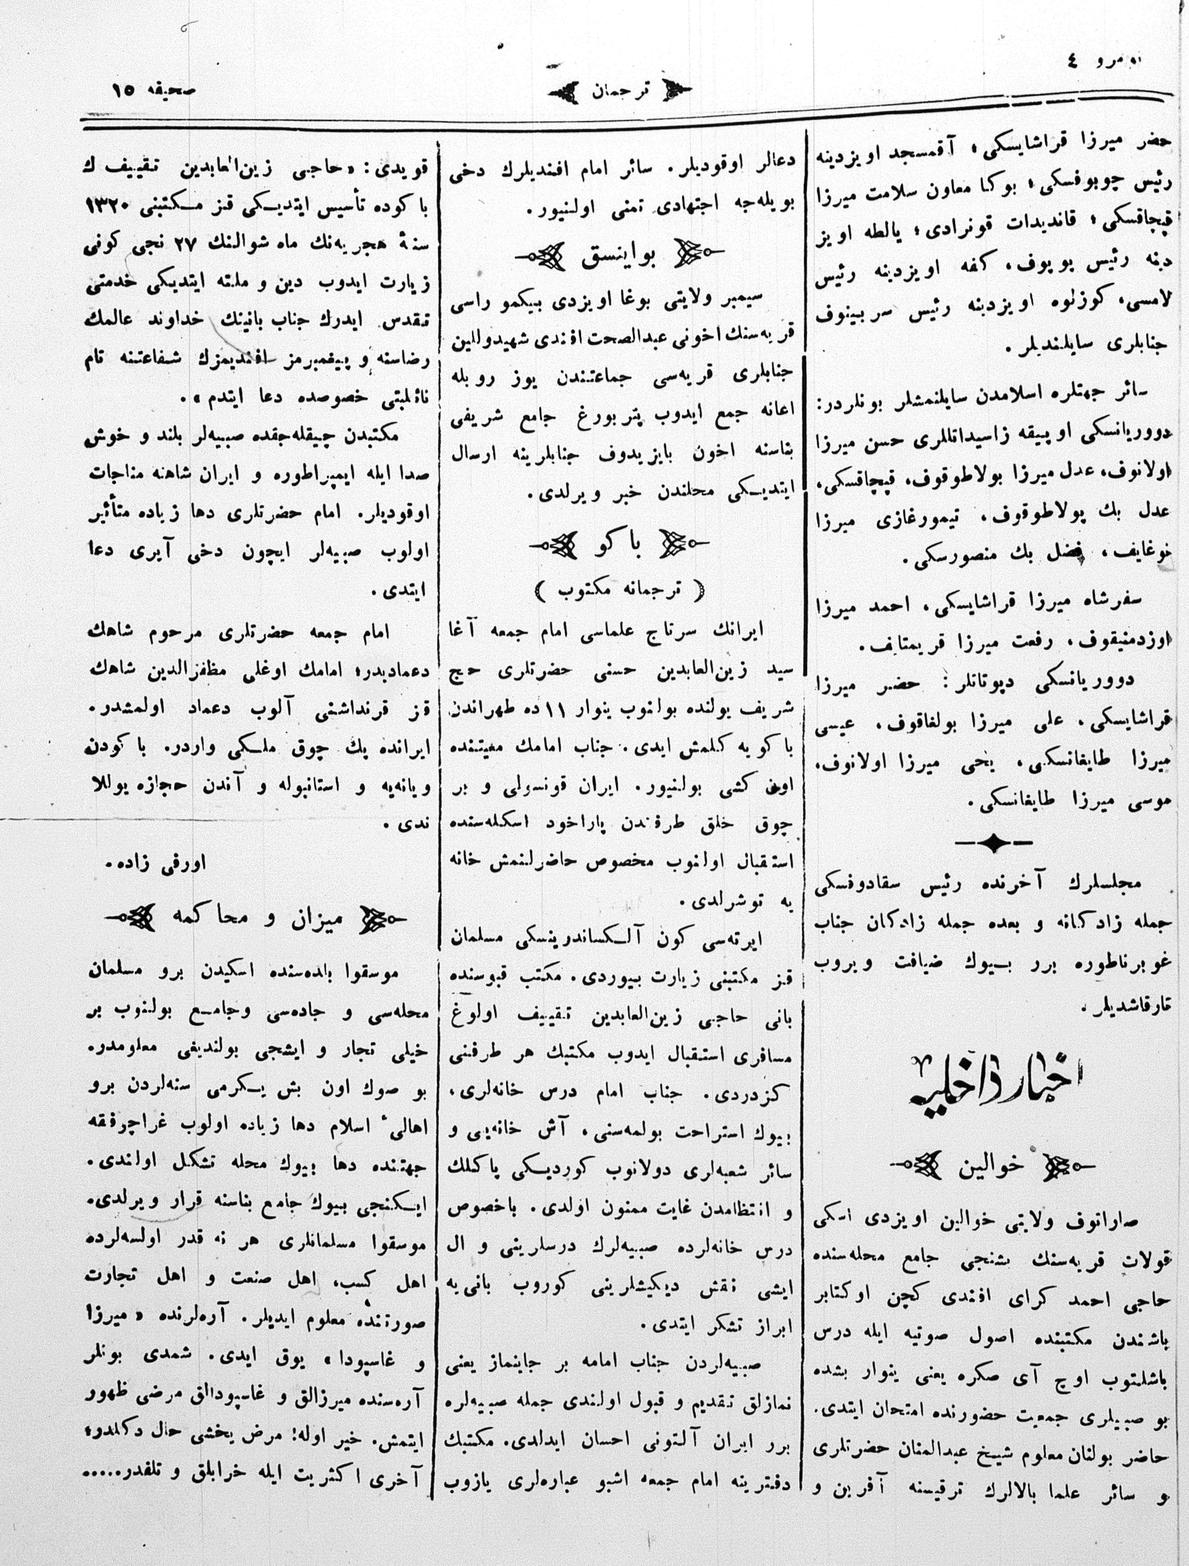 نومرو ٤
ترجمان
صحیفه ١٥
حضر میرزا قراشایسکی، آقمسجد اویزدینه
رئیس چوبوفسکی، بوکا معاون سلامت میرزا
قپچاقسکی، قاندیدات قونرادی، یالطه اویز
دینه رئیس پوپوف، کفه اویزدینه رئیس
لامسی، کوزلوه اویزدینه رئیس سربینوف
جنابلری سایلندیلر.
سائر جهتلره اسلامدن سایلنمشلر بونلردر:
دووریانسکی اوپیقه زاسیداتللری حسن میرزا
اولانوف، عدل میرزا بولاطوقوف، قپچاقسکی،
عدل بك پولاطوقوف، تیمورغازی میرزا
نوغایف، فضل بك منصورسکی.
سفرشاه میرزا قراشایسکی، احمد میرزا
اوزدمنیقوف، رفعت میرزا قریمتایف.
دووریانسکی دپوتاتلر: حضر میرزا
قراشایسکی، علی میرزا بولغاقوف، عیسی
میرزا طایغانسکی، یحی میرزا اولانوف،
موسی میرزا طایغانسکی.
مجلسلرك آخرنده رئیس سقادوفسکی
جمله زادکانه و بعده جمله زادکان جناب
غوبرناطوره برر بیوك ضیافت ویروب
تارقاشدیلر.
اخبار داخلیه
خوالین
صاراتوف ولایتی خوالین اویزدی اسکی
قولات قریه‌سنك بشنجی جامع محله‌سنده
حاجی احمد کرای افندی کچن اوکتابر
باشندن مکتبنده اصول صوتیه ایله درس
باشلیتوب اوچ آی صکره یعنی ینوار بشده
بو صبیلری جمعیت حضورنده امتحان ایتدی.
حاضر بولنان معلوم شیخ عبدالمنان حضرتلری
و سائر علما بالالرك ترقیسنه آفرین و
دعالر اوقودیلر. سائر امام افندیلرك دخی
بویله‌جه اجتهادی تمنی اولنیور.
بواینسق
سیمبر ولایتی بوغا اویزدی بیکمو راسی
قریه‌سنك اخونی عبدالصحت افندی شهیدوللین
جنابلری قریه‌سی جماعتندن یوز روبله
اعانه جمع ایدوب پتربورغ جامع شریفی
بناسنه اخون بایزیدوف جنابلرینه ارسال
ایتدیکی محلندن خبر ویرلدی.
باکو
( ترجمانه مکتوب )
ایرانك سرتاج علماسی امام جمعه آغا
سید زین‌العابدین حسنی حضرتلری حج
شریف یولنده بولنوب ینوار ١١ده طهراندن
باکویه کلمش ایدی. جناب امامك معیتنده
اون کشی بولنیور. ایران قونسولی و بر
چوق خلق طرفندن پاراخود اسکله‌سنده
استقبال اولنوب مخصوص حاضرلنمش خانه
یه توشرلدی.
ایرته‌سی کون آلکساندرینسکی مسلمان
قز مکتبنی زیارت بیوردی. مکتب قبوسنده
بانی حاجی زین‌العابدین تقییف اولوغ
مسافری استقبال ایدوب مکتبك هر طرفنی
کزدردی. جناب امام درس خانه‌لری،
بیوك استراحت بولمه‌سنی، آش خانه‌یی و
سائر شعبه‌لری دولانوب کوردیکی پاکلك
و انتظامدن غایت ممنون اولدی. باخصوص
درس خانه‌لرده صبیه‌لرك درسلرینی و ال
ایشی نقش دیکیشلرینی کوروب بانی‌یه
ابراز تشکر ایتدی.
صبیه‌لردن جناب امامه بر جاینماز یعنی
نمازلق تقدیم و قبول اولندی جمله صبیه‌لره
برر ایران آلتونی احسان ایدلدی. مکتبك
دفترینه امام جمعه اشبو عباره‌لری یازوب
قویدی: «حاجی زین‌العابدین تقییف ك
باکوده تأسیس ایتدیکی قز مکتبنی ١٣٢٠
سنهٔ هجریه‌نك ماه شوالنك ٢٧ نجی کونی
زیارت ایدوب دین و ملته ایتدیکی خدمتی
تقدس ایدرك جناب بانینك خداوند عالمك
رضاسنه و پیغمبرمز افندیمزك شفاعتنه تام
نائلیتی خصوصده دعا ایتدم».
مکتبدن چیقله‌جقده صبیه‌لر بلند و خوش
صدا ایله ایمپراطوره و ایران شاهنه مناجات
اوقودیلر. امام حضرتلری دها زیاده متأثر
اولوب صبیه‌لر ایچون دخی آیری دعا
ایتدی.
امام جمعه حضرتلری مرحوم شاهك
دعمادیدر، امامك اوغلی مظفرالدین شاهك
قز قرنداشنی آلوب دعماد اولمشدر.
ایرانده پك چوق ملکی واردر. باکودن
ویانه‌یه و استانبوله و آندن حجازه یوللا
ندی.
اورفی زاده.
میزان و محاکمه
موسقوا بلده‌سنده اسکیدن برو مسلمان
محله‌سی و جاده‌سی وجامع بولنوب بر
خیلی تجار و ایشجی بولندیغی معلومدر.
بو صوك اون بش یکرمی سنه‌لردن برو
اهالیٔ اسلام دها زیاده اولوب غراچرفقه
جهتنده دها بیوك محله تشکل اولندی.
ایکنجی بیوك جامع بناسنه قرار ویرلدی.
موسقوا مسلمانلری هر نه قدر اولسه‌لرده
اهل کسب، اهل صنعت و اهل تجارت
صورتنده معلوم ایدیلر. آره‌لرنده «میرزا
و غاسپودا» یوق ایدی. شمدی بونلر
آره‌سنده میرزالق و غاسپودالق مرضی ظهور
ایتمش. خیر اوله! مرض یخشی حال دکلدر،
آخری اکثریت ایله خرابلق و تلفدر.....